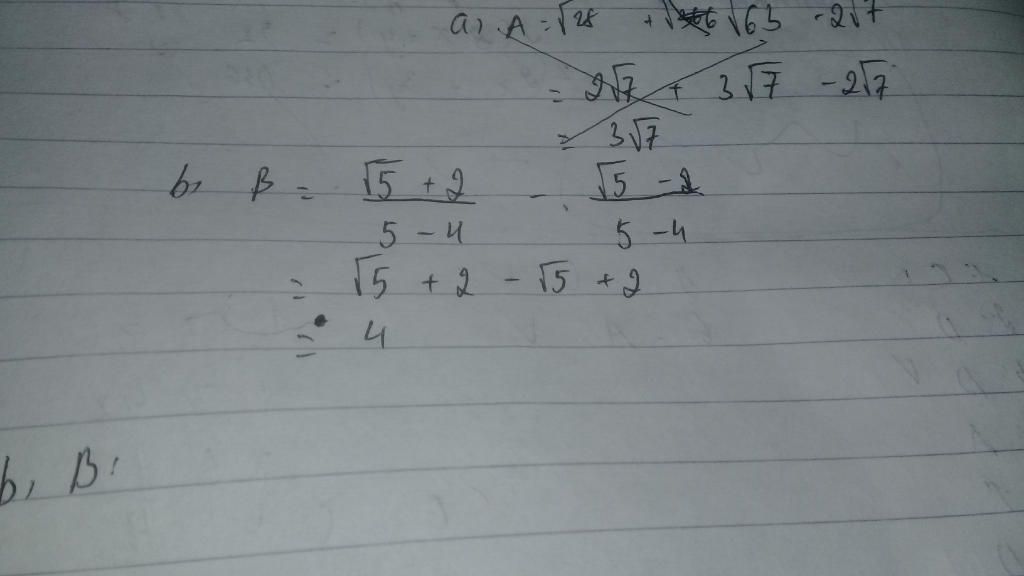 a, A = √28 + √63 - 2√7
= 2√7 + 3√7 - 2√7
= 3√7
b, B = (√5 + 2)/(5 - 4) - (√5 - 2)/(5 - 4)
= √5 + 2 - √5 + 2
= 4
b, B: